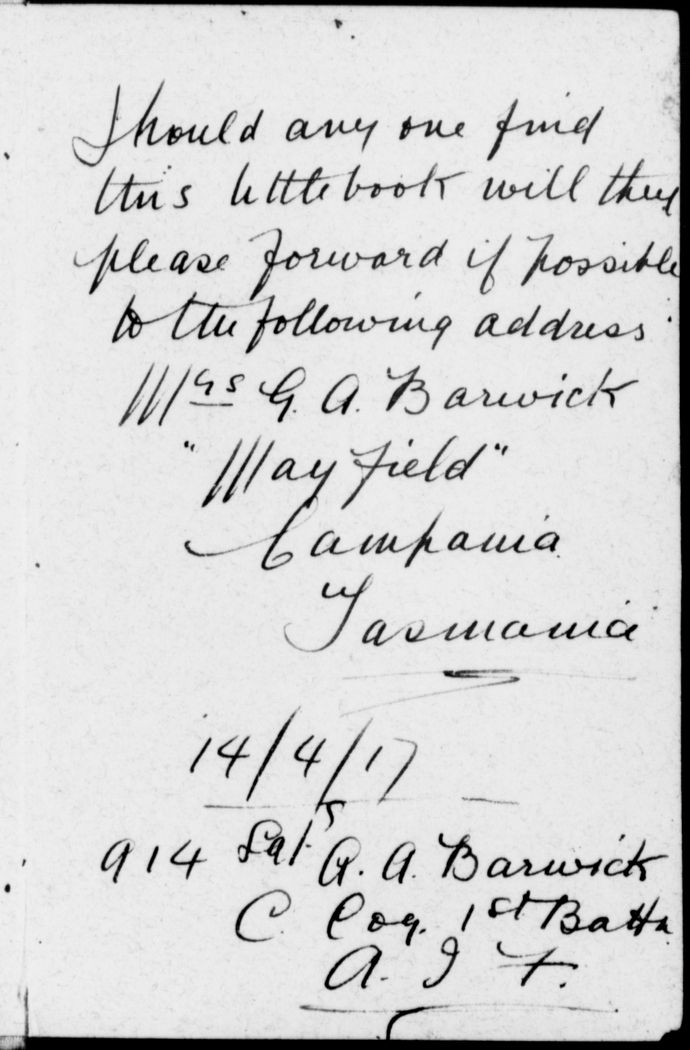 Should any one find
this little book will they
please forward if possible
to the following address
Mrs G. A. Barwick
"Mayfield"
Campania
Tasmania
14/4/17
914 Sgt A. A. Barwick
C. Coy. 1st Battn
A. I. F.